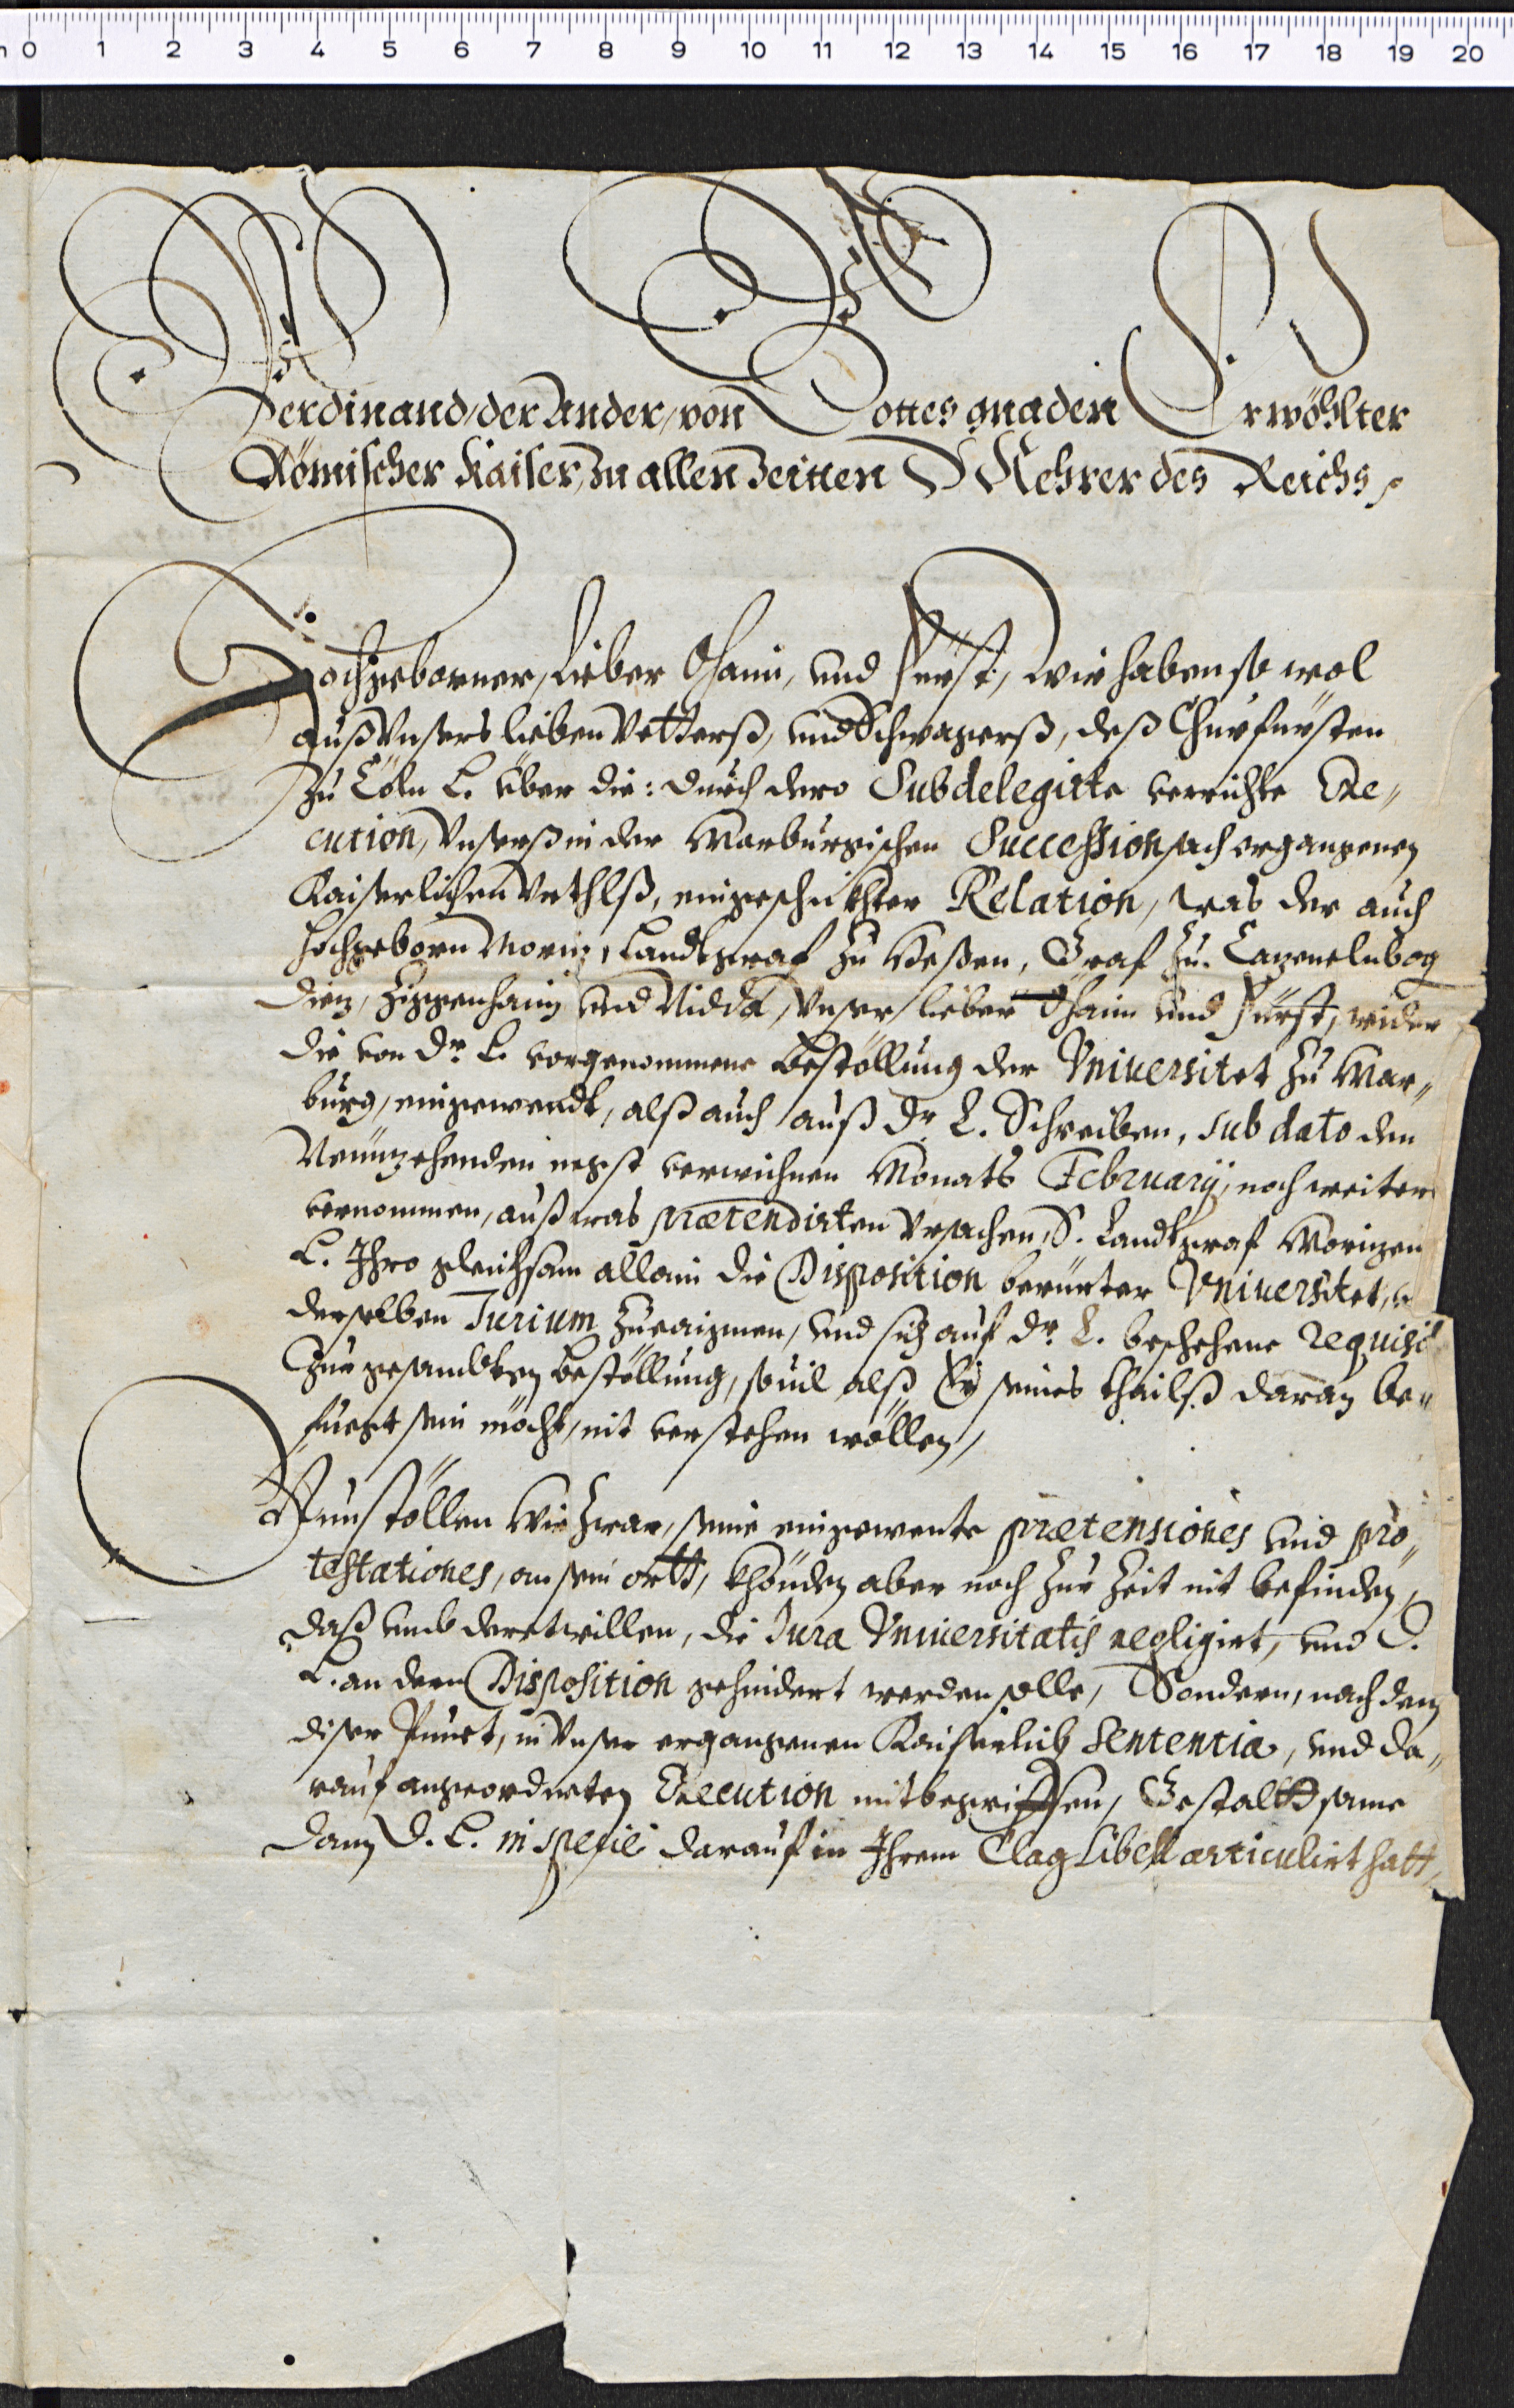 0 1 2 3 4 5 6 7 8 9 10 11 12 13 14 15 16 17 18 19 20
Ferdinand, der Ander, von Gottes gnaden Erwöhlter
Römischer Kaiser, zu allen Zeitten Mehrer des Reichs,
Hochgeborner, lieber Ohaim, und Fürst, wir haben so wol
auß Unsers lieben Vetterß, und Schwagerß, deß Churfürsten
zu Cöln L. über die: durch dero Subdelegirte verrichte Exe„
cution, Unserß in der Marburgischen Succession sach ergangenen
Kaiserlichen Urthlß, eingeschickhter Relation, was der auch
Hochgeborn Moriz, Landtgraf zu Heßen, Graf zu Cazenelnbog
Diez, Zigenhaim und Nidda, Unser lieber Ohaim und Fürst, wider
die von Dr. L. vorgenommene Bestöllung der Vniuersitet zu Mar„
burg, eingewendt, alß auch auß Dr. L. Schreiben, sub dato den
Neünzehenden negst verwichnen Monats February, noch weiter
vernommen, auß was prætendirten Ursachen, S. Landtgraf Morizen
L. Ihro gleichsam allain die Disposition berürter Vniuersitet,
derselben Jurium zueaignen, und sich auf Dr. L. beschehene requisi
zur gesambten Bestöllung, souil alß Er seines thailß daran be„
fuegt sein möcht, nit verstehen wöllen,
Nun stöllen Wir zwar, seine eingewente prætensiones und pro„
testationes, an sein ortt, khönden aber noch zur Zeit nit befinden,
daß umb deretwillen, die Jura Vniuersitatis negligirt, und D.
L. an dern Disposition gehindert werden solle, Sondern, nach dem
diser Punct, in Unser ergangenen Kaiserlich Sententia, und da„
rauf angeordneten Execution mitbegriffen, Gestaltsame
dann D. L. in specie darauf in Ihrem Clag Libell articulirt hatt,